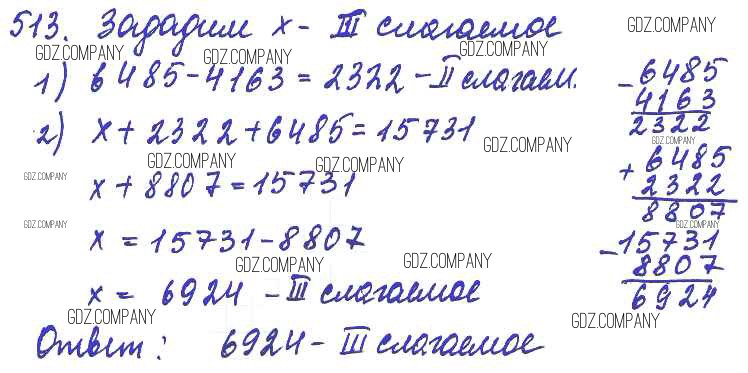 513. Зададим x - III слагаемое
GDZ.COMPANY GDZ.COMPANY GDZ.COMPANY GDZ.COMPANY
1) 6485 - 4163 = 2322 - II слагаем.
2) x + 2322 + 6485 = 15731
GDZ.COMPANY GDZ.COMPANY GDZ.COMPANY
GDZ.COMPANY x + 8807 = 15731
GDZ.COMPANY x = 15731 - 8807
GDZ.COMPANY GDZ.COMPANY
x = 6924 - III слагаемое
GDZ.COMPANY GDZ.COMPANY
Ответ: 6924 - III слагаемое
- 6485
4163
2322
GDZ.COMPANY
+ 6485
2322
8807
GDZ.COMPANY
- 15731
8807
6924